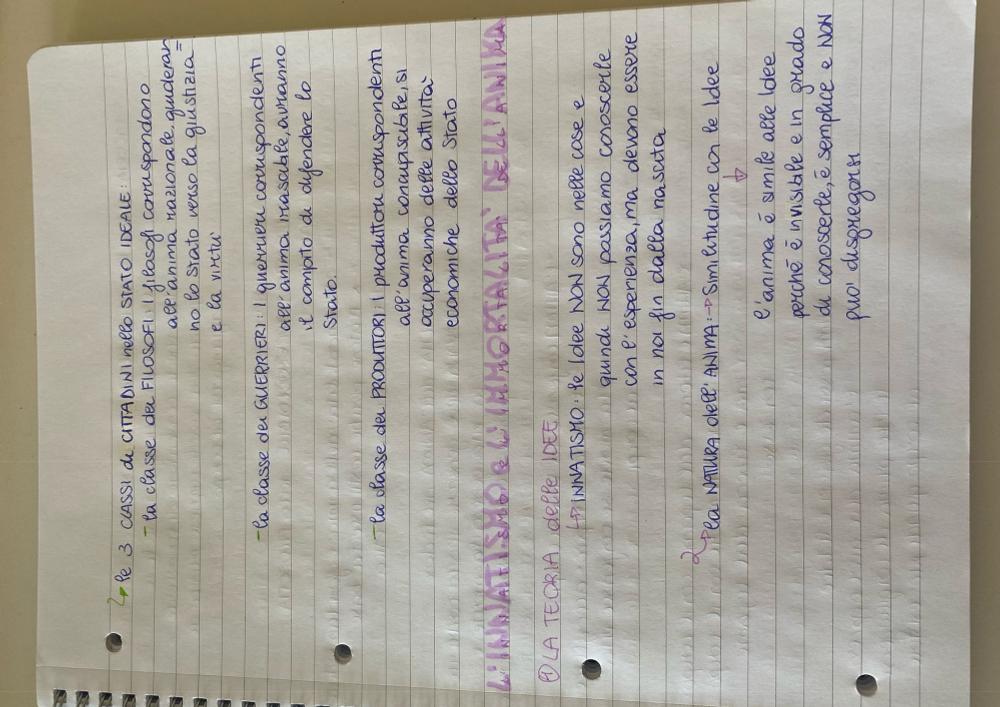 ↳ le 3 CLASSI di CITTADINI nello STATO IDEALE:
- la classe dei FILOSOFI: I filosofi corrispondono
all'anima razionale, guideran
no lo Stato verso la giustizia =
e la virtù
- la classe dei GUERRIERI: I guerrieri corrispondenti
all'anima irascibile, avranno
il compito di difendere lo
Stato.
- la classe dei PRODUTTORI: I produttori corrispondenti
all'anima concupiscibile, si
occuperanno delle attività
economiche dello Stato
L'INNATISMO e L'IMMORTALITA' DELL'ANIMA
① LA TEORIA delle IDEE
↳ INNATISMO: le Idee NON sono nelle cose e
quindi NON possiamo conoscerle
con l'esperienza, ma devono essere
in noi fin dalla nascita
2→ la NATURA dell'ANIMA: → Similitudine con le Idee
↓
l'anima è simile alle Idee
perché è invisibile e in grado
di conoscerle, è semplice e NON
può disgregarsi